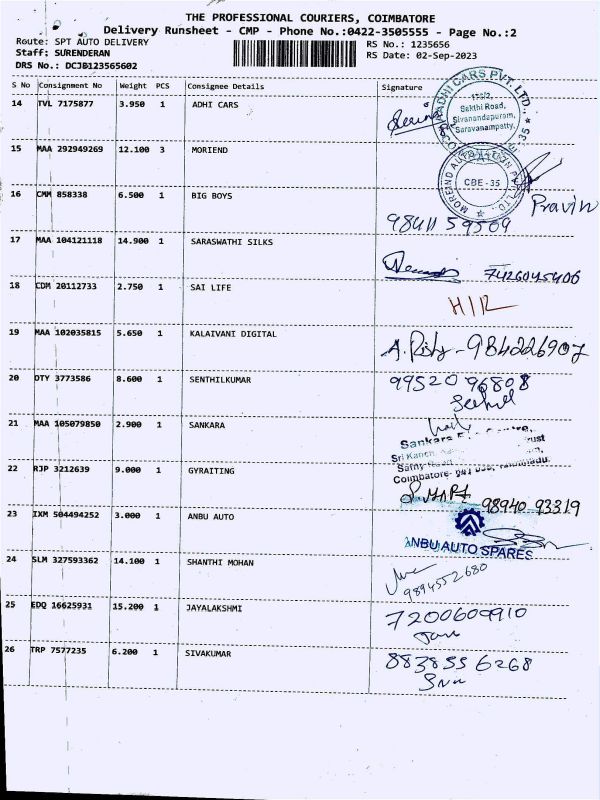 THE PROFESSIONAL COURIERS, COIMBATORE
Delivery Runsheet - CMP - Phone No.:0422-3505555 - Page No.:2
Route: SPT AUTO DELIVERY
RS No.: 1235656
Staff: SURENDERAN
RS Date: 02-Sep-2023
DRS No.: DCJB123565602
S No Consignment No Weight PCS Consignee Details Signature
14 TVL 7175877 3.950 1 ADHI CARS
ADHI CARS PVT. LTD.
Sakthi Road,
Sivanandapuram,
Saravanampatty,
15 MAA 292949269 12.100 3 MORIEND
CBE-35
16 CMM 858338 6.500 1 BIG BOYS
Pravin
98411 59509
17 MAA 104121118 14.900 1 SARASWATHI SILKS
7426045406
18 CDM 20112733 2.750 1 SAI LIFE
H/R
19 MAA 102035815 5.650 1 KALAIVANI DIGITAL
20 DTY 3773586 8.600 1 SENTHILKUMAR
99520 96808
21 MAA 105079850 2.900 1 SANKARA
Sankara
Sri Kanch
Trust
Coimbatore-
22 RJP 3212639 9.000 1 GYRAITING
98940 93319
23 IXM 504494252 3.000 1 ANBU AUTO
ANBU AUTO SPARES
24 SLM 327593362 14.100 1 SHANTHI MOHAN
9894552680
25 EDQ 16625931 15.200 1 JAYALAKSHMI
7200600910
26 TRP 7577235 6.200 1 SIVAKUMAR
8838556268